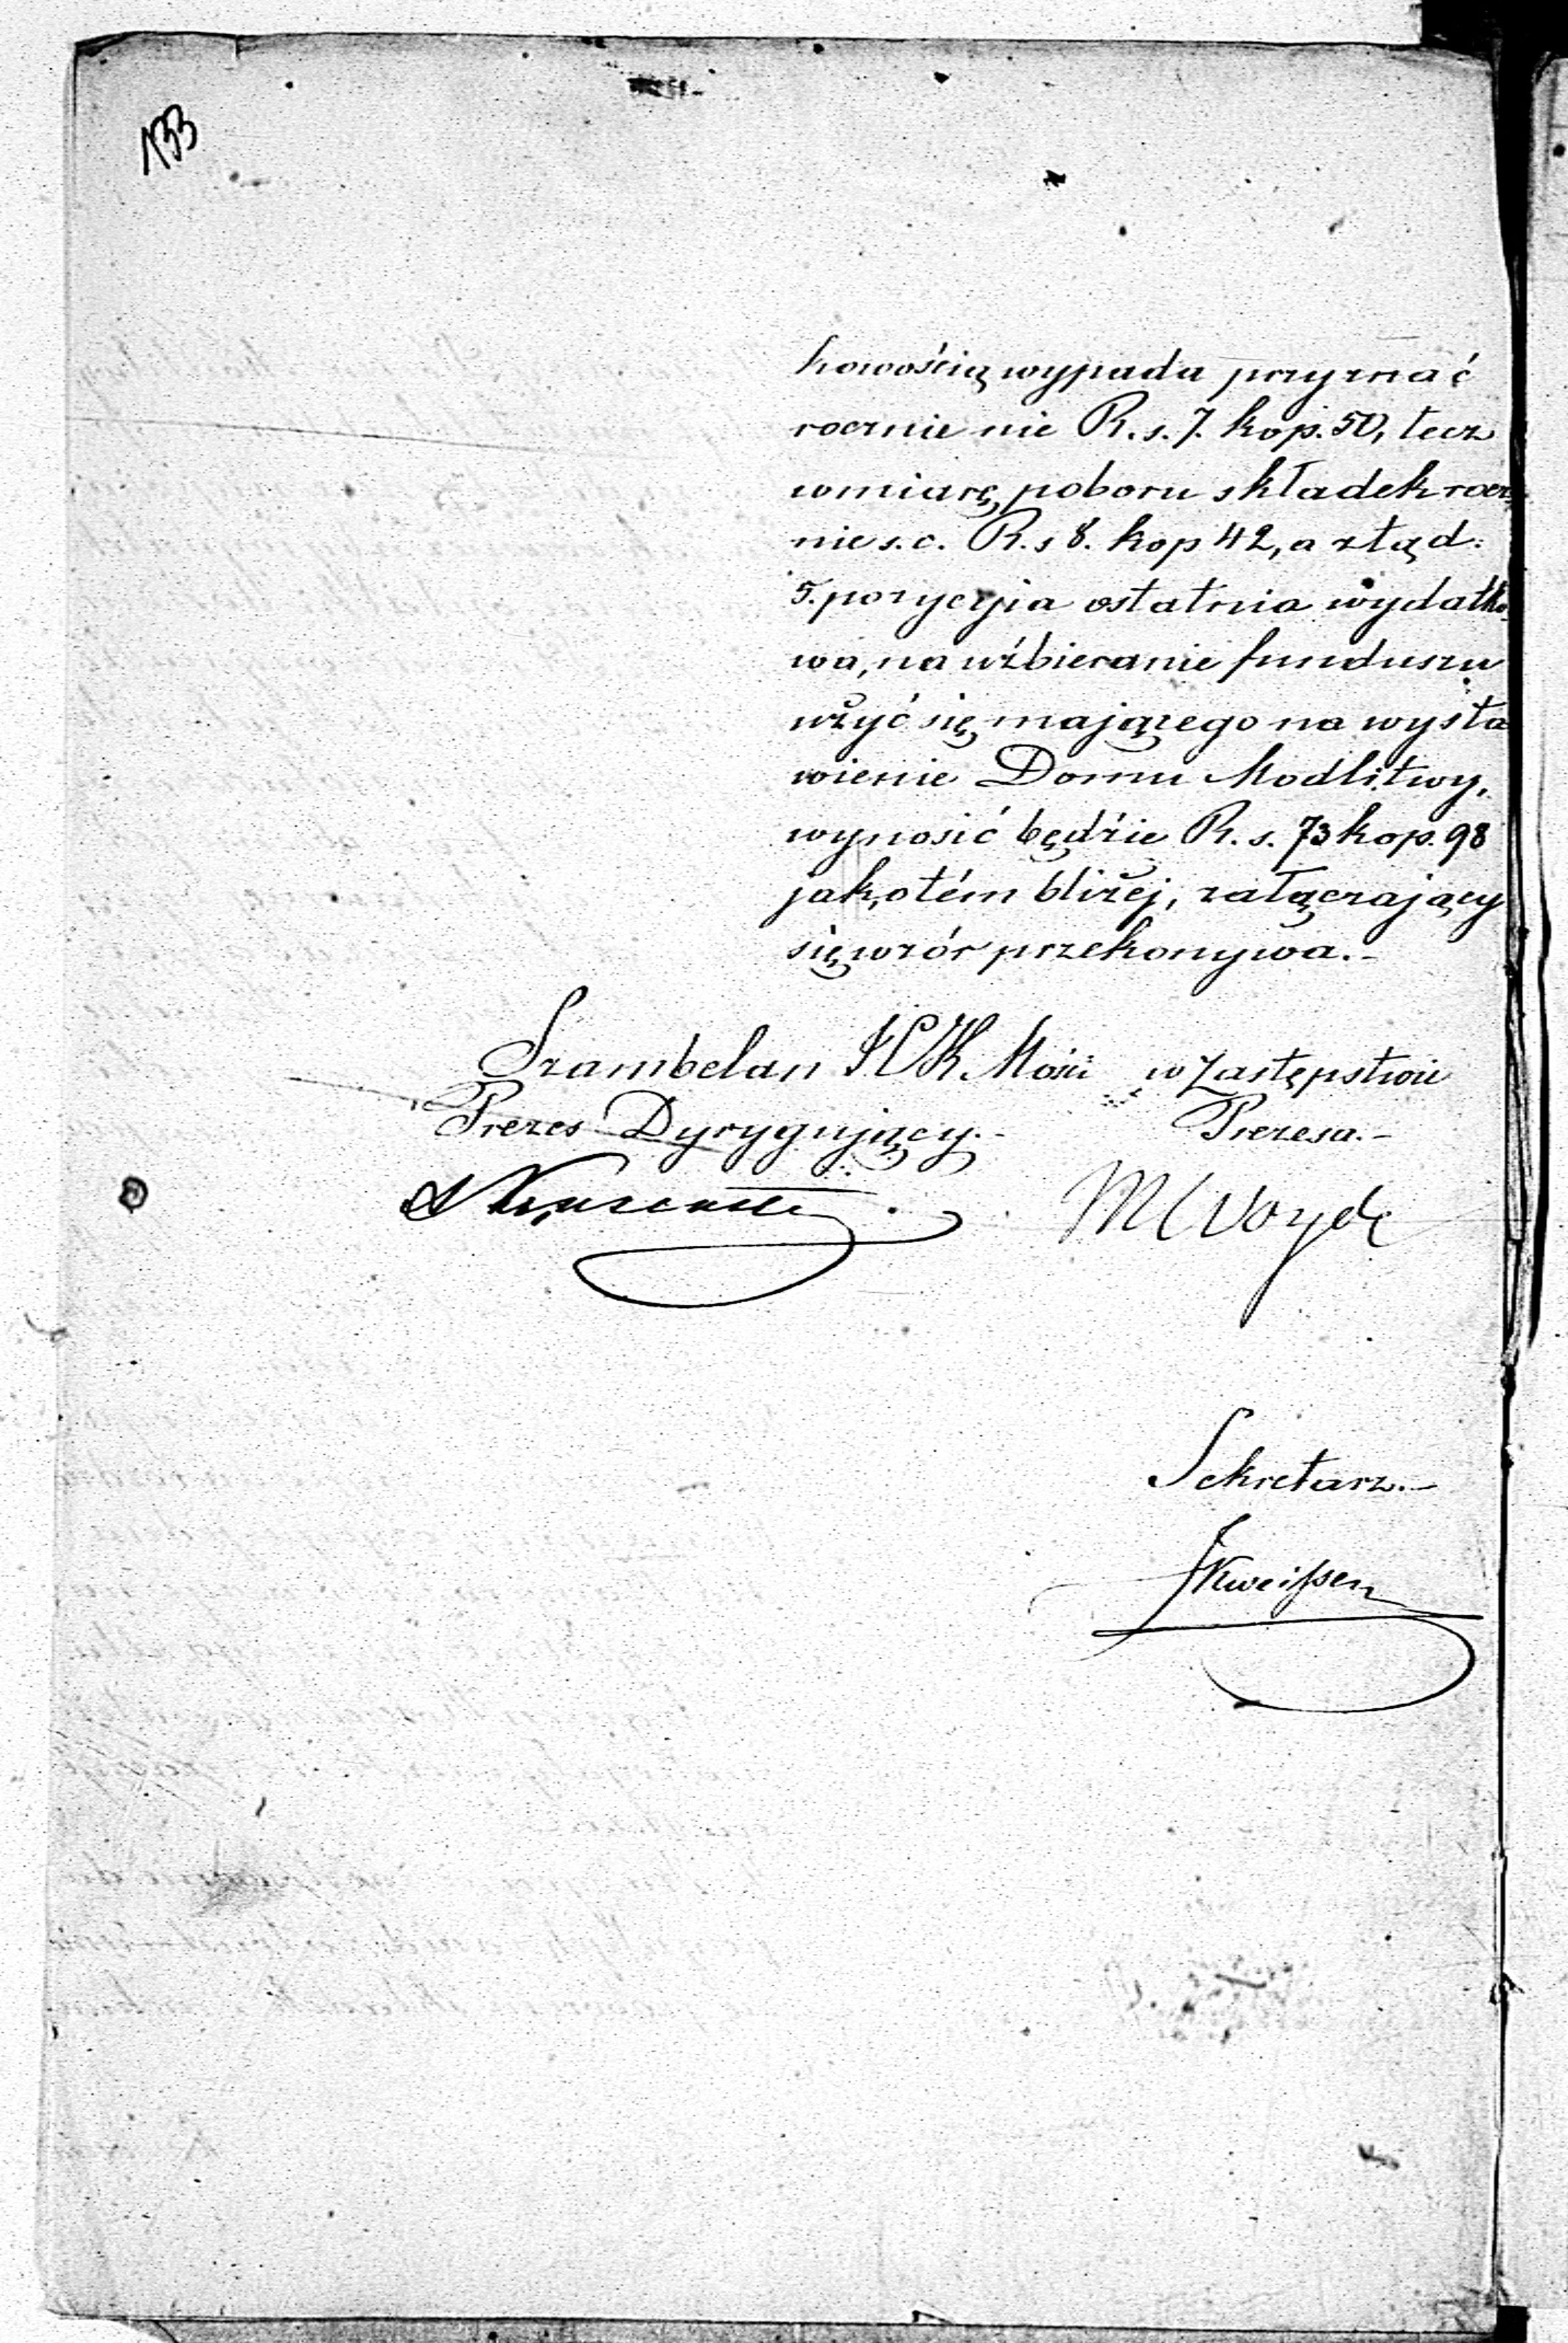 133
kowością wypada przyznać
rocznie nie R. s. 7. kop. 50, lecz
w miarę poboru składek rocz
nie s. c. R. s 8. kop 42, a ztąd:
5. pozycyja ostatnia wydatko
wa, na uzbieranie funduszu
użyć się mającego na wysta
wienie Domu Modlitwy,
wynosić będzie R. s. 73 kop. 98
jak, o tém bliżej, załączający
się wzór przekonywa.-
Szambelan JCK Mości w Zastępstwie
Prezes Dyrygujący.- Prezesa.-
M Woyde
Sekretarz.-